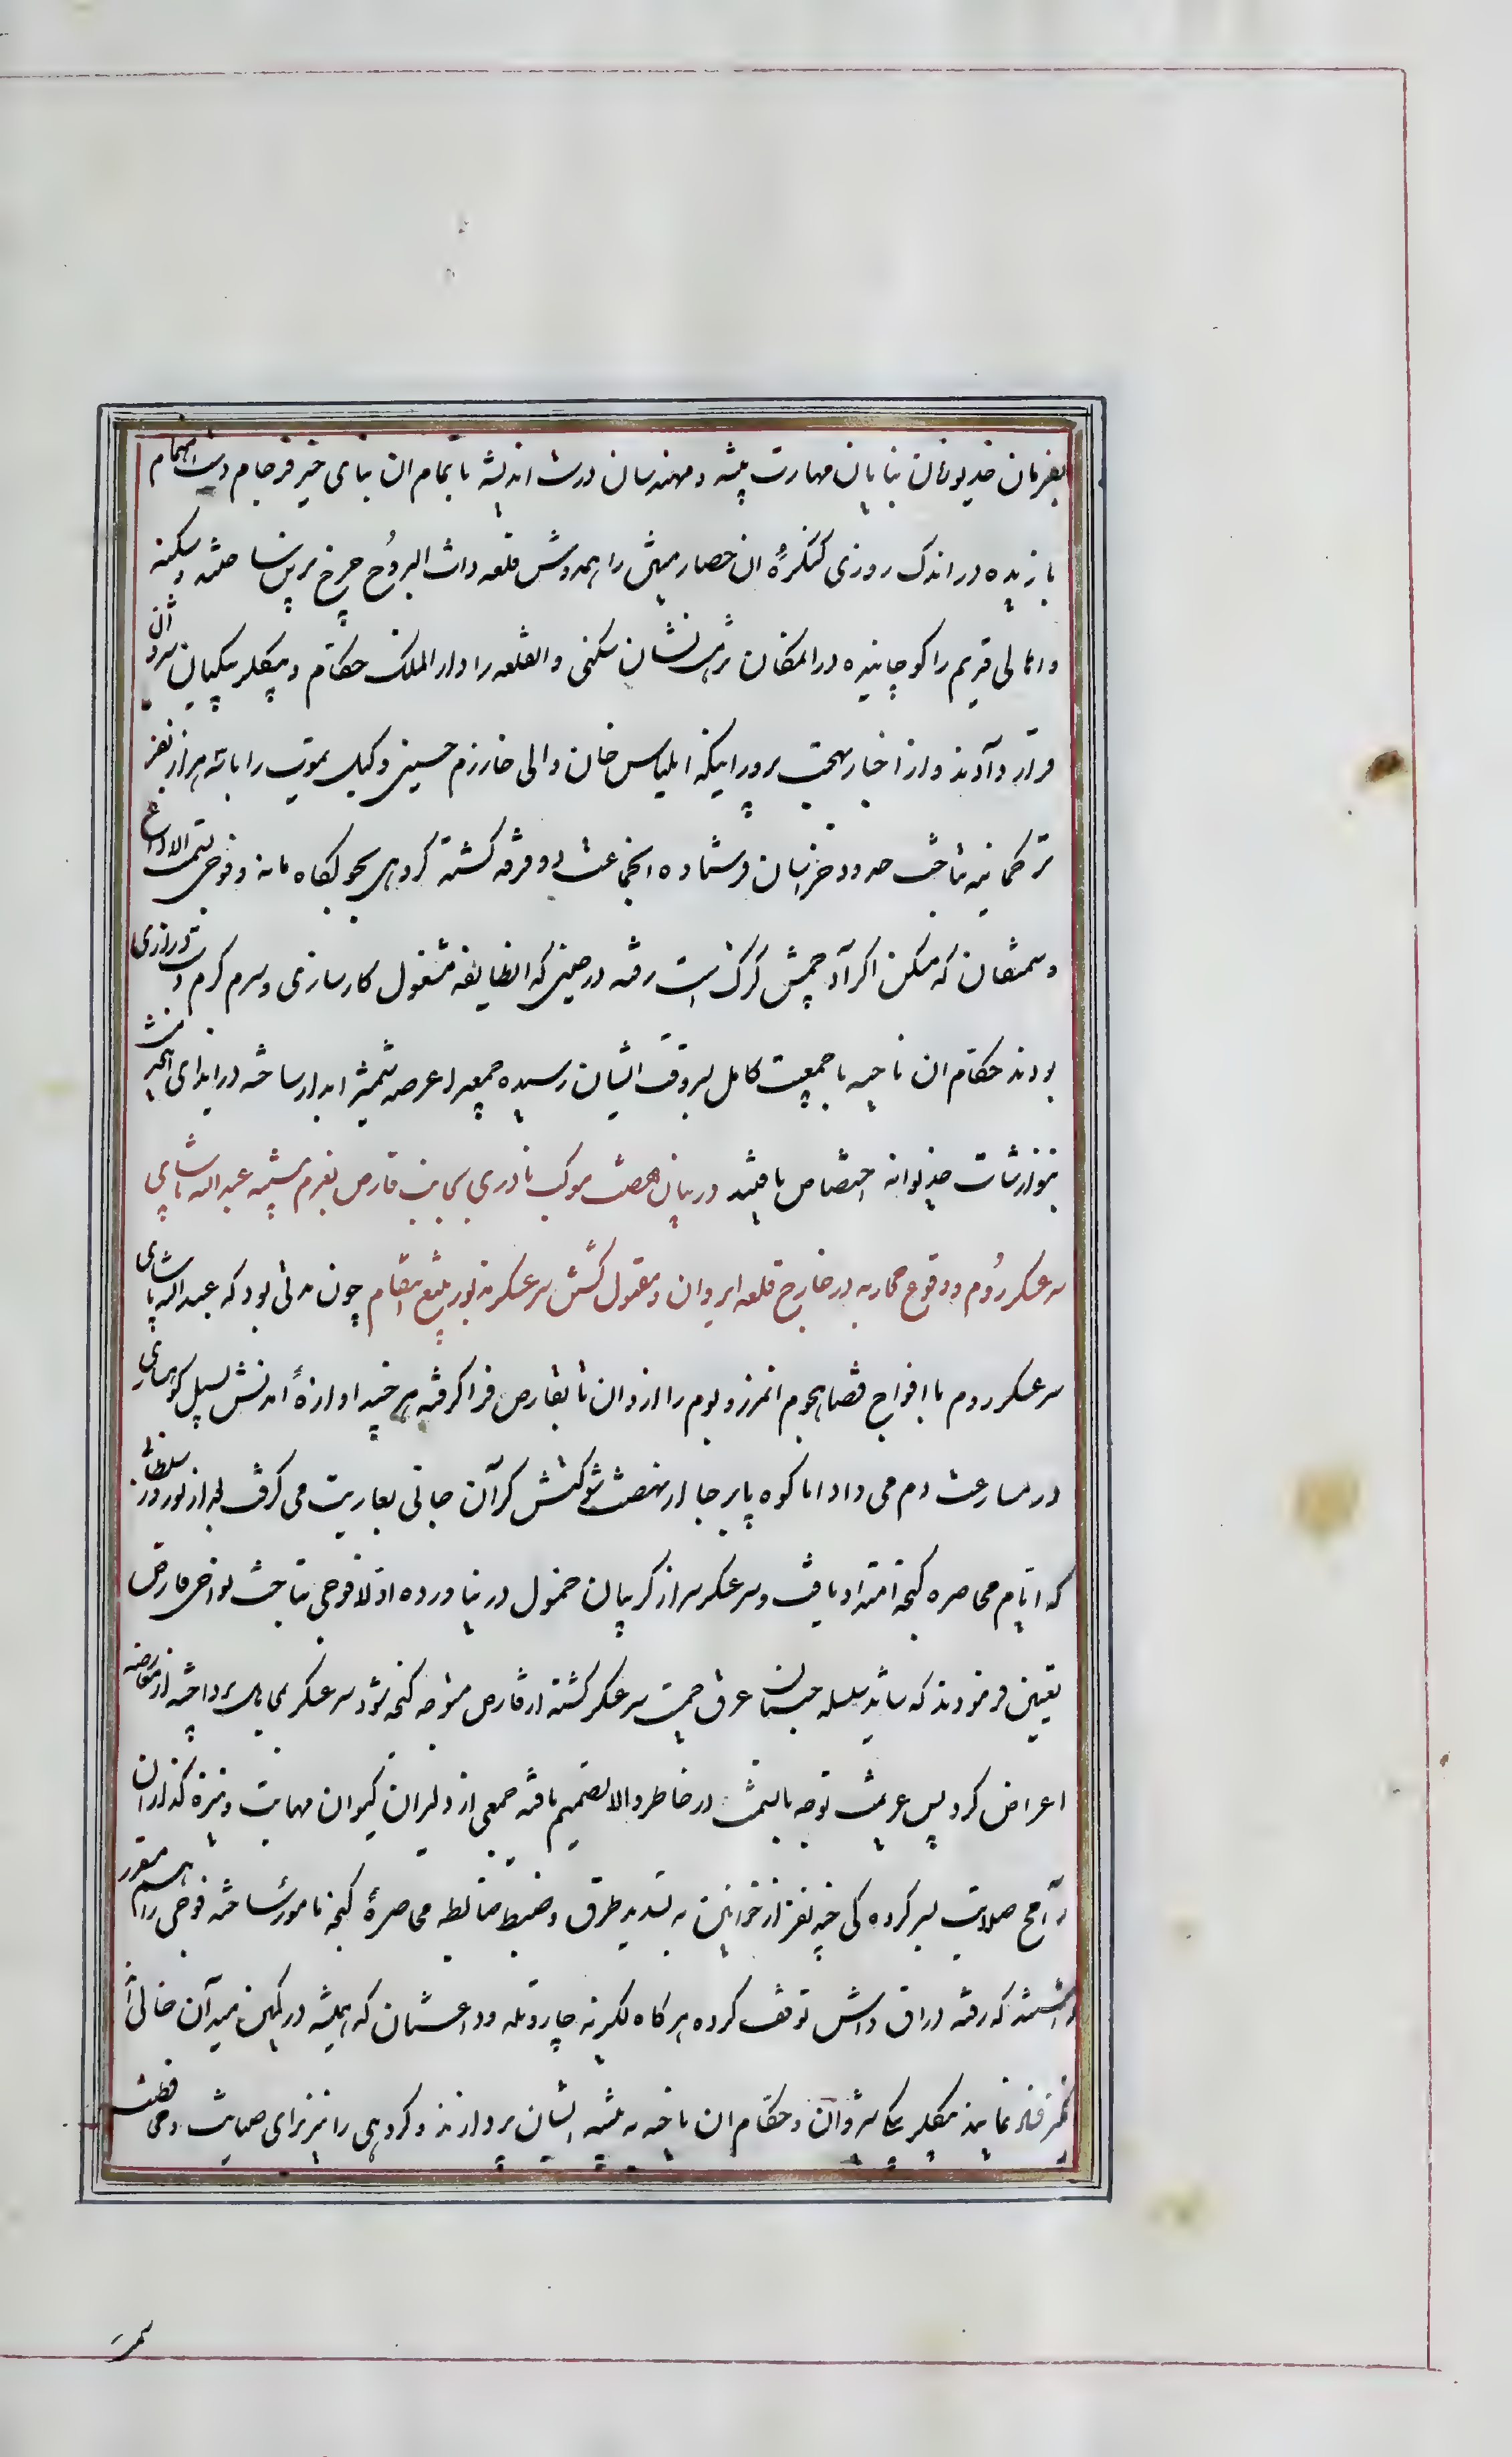 بفرمان خدیو زمان بنایان مهارت پیشه و مهندسان درست اندیشه باتمام ان بنای خیر فرجام دست اهتمام
یازیده در اندک روزی کنکرهٔ ان حصار متین را همدوش قلعه ذات البروُج چرخ برین ساخته و سکنه
و اهالی قدیم را کوچانیده در المکان نزهت نشان سکنی و القلعه را دار الملک حکّام و بیکلر بیکیان شروان
قرار دادند و از اخبار بهجت پرور اینکه ایلباس خان والی خارزم حسینی وکیل یموت را با سه هزار نفر
ترکمانیه بتاخت حدود خراسان فرستاده انجماعت دو فرقه کشته کروهی بجولکاه مانه و فوجی بسمت الاداغ
و سمنقان که مسکن اکراد چمش کزک است رفته در حینی که انطایفه مشغول کارسازی و سرم کرم دست درازی
بودند حکّام ان ناحیه با جمعیت کامل بسر وقت ایشان رسیده جمعیرا عرصه شمشیر ابدار ساخته در ازای انخدمت
بنوازشات خدیوانه اختصاص یافتند در بیان نهضت موکب نادری بجانب قارص بعزم تنبیه عبدالله پاشای
سرعسکر رُوم و وقوع محاربه در خارج قلعه ایروان و مقتول کشتن سرعسکر مزبور بتیغ انتقام چون مدتی بود که عبدالله پاشای
سرعسکر روم با افواج قضا هجوم انمرز و بوم را از وان تا بقارص فرا کرفته هر چند اوازهٔ امدنش بسیل کوهسار
در مسارعت دم می داد اما کوه پا بر جا از نهضت شوکتش کران جانی بعاریت می کرفت بعد از نوروز سلطانی
که ایّام محاصره کنجه امتداد یافت و سرعسکر سر از کریبان خمول در نیاورده اوّلا فوجی بتاخت نواحی قارص
تعیین فرمودند که شاید سلسله جنبان عرق حمیت سرعسکر کشته از قارص متوجّه کنجه شود سرعسکر بجایی نپرداخته از معارضه
اعراض کرد پس عزیمت توجه بانسمت در خاطر والا تصمیم یافته جمعی از دلیران کیوان مهابت و نیزه کذاران
رامح صلابت بسر کرده کی چند نفر از خوانین به تسدید طرق و ضبط ضابطه محاصرهٔ کنجه نامور ساخته فوجی را هم مقرر
داشتند که رفته در اق داش توقف کرده هر کاه لکزیه جار و تله و داغستان که همیشه در کمین میدان خالی اند
فنه نمایند بیکلر بیکی شروان و حکّام ان ناحیه به تنبیه ایشان پردازند و کروهی را نیز برای حمایت و محافظت
سمت